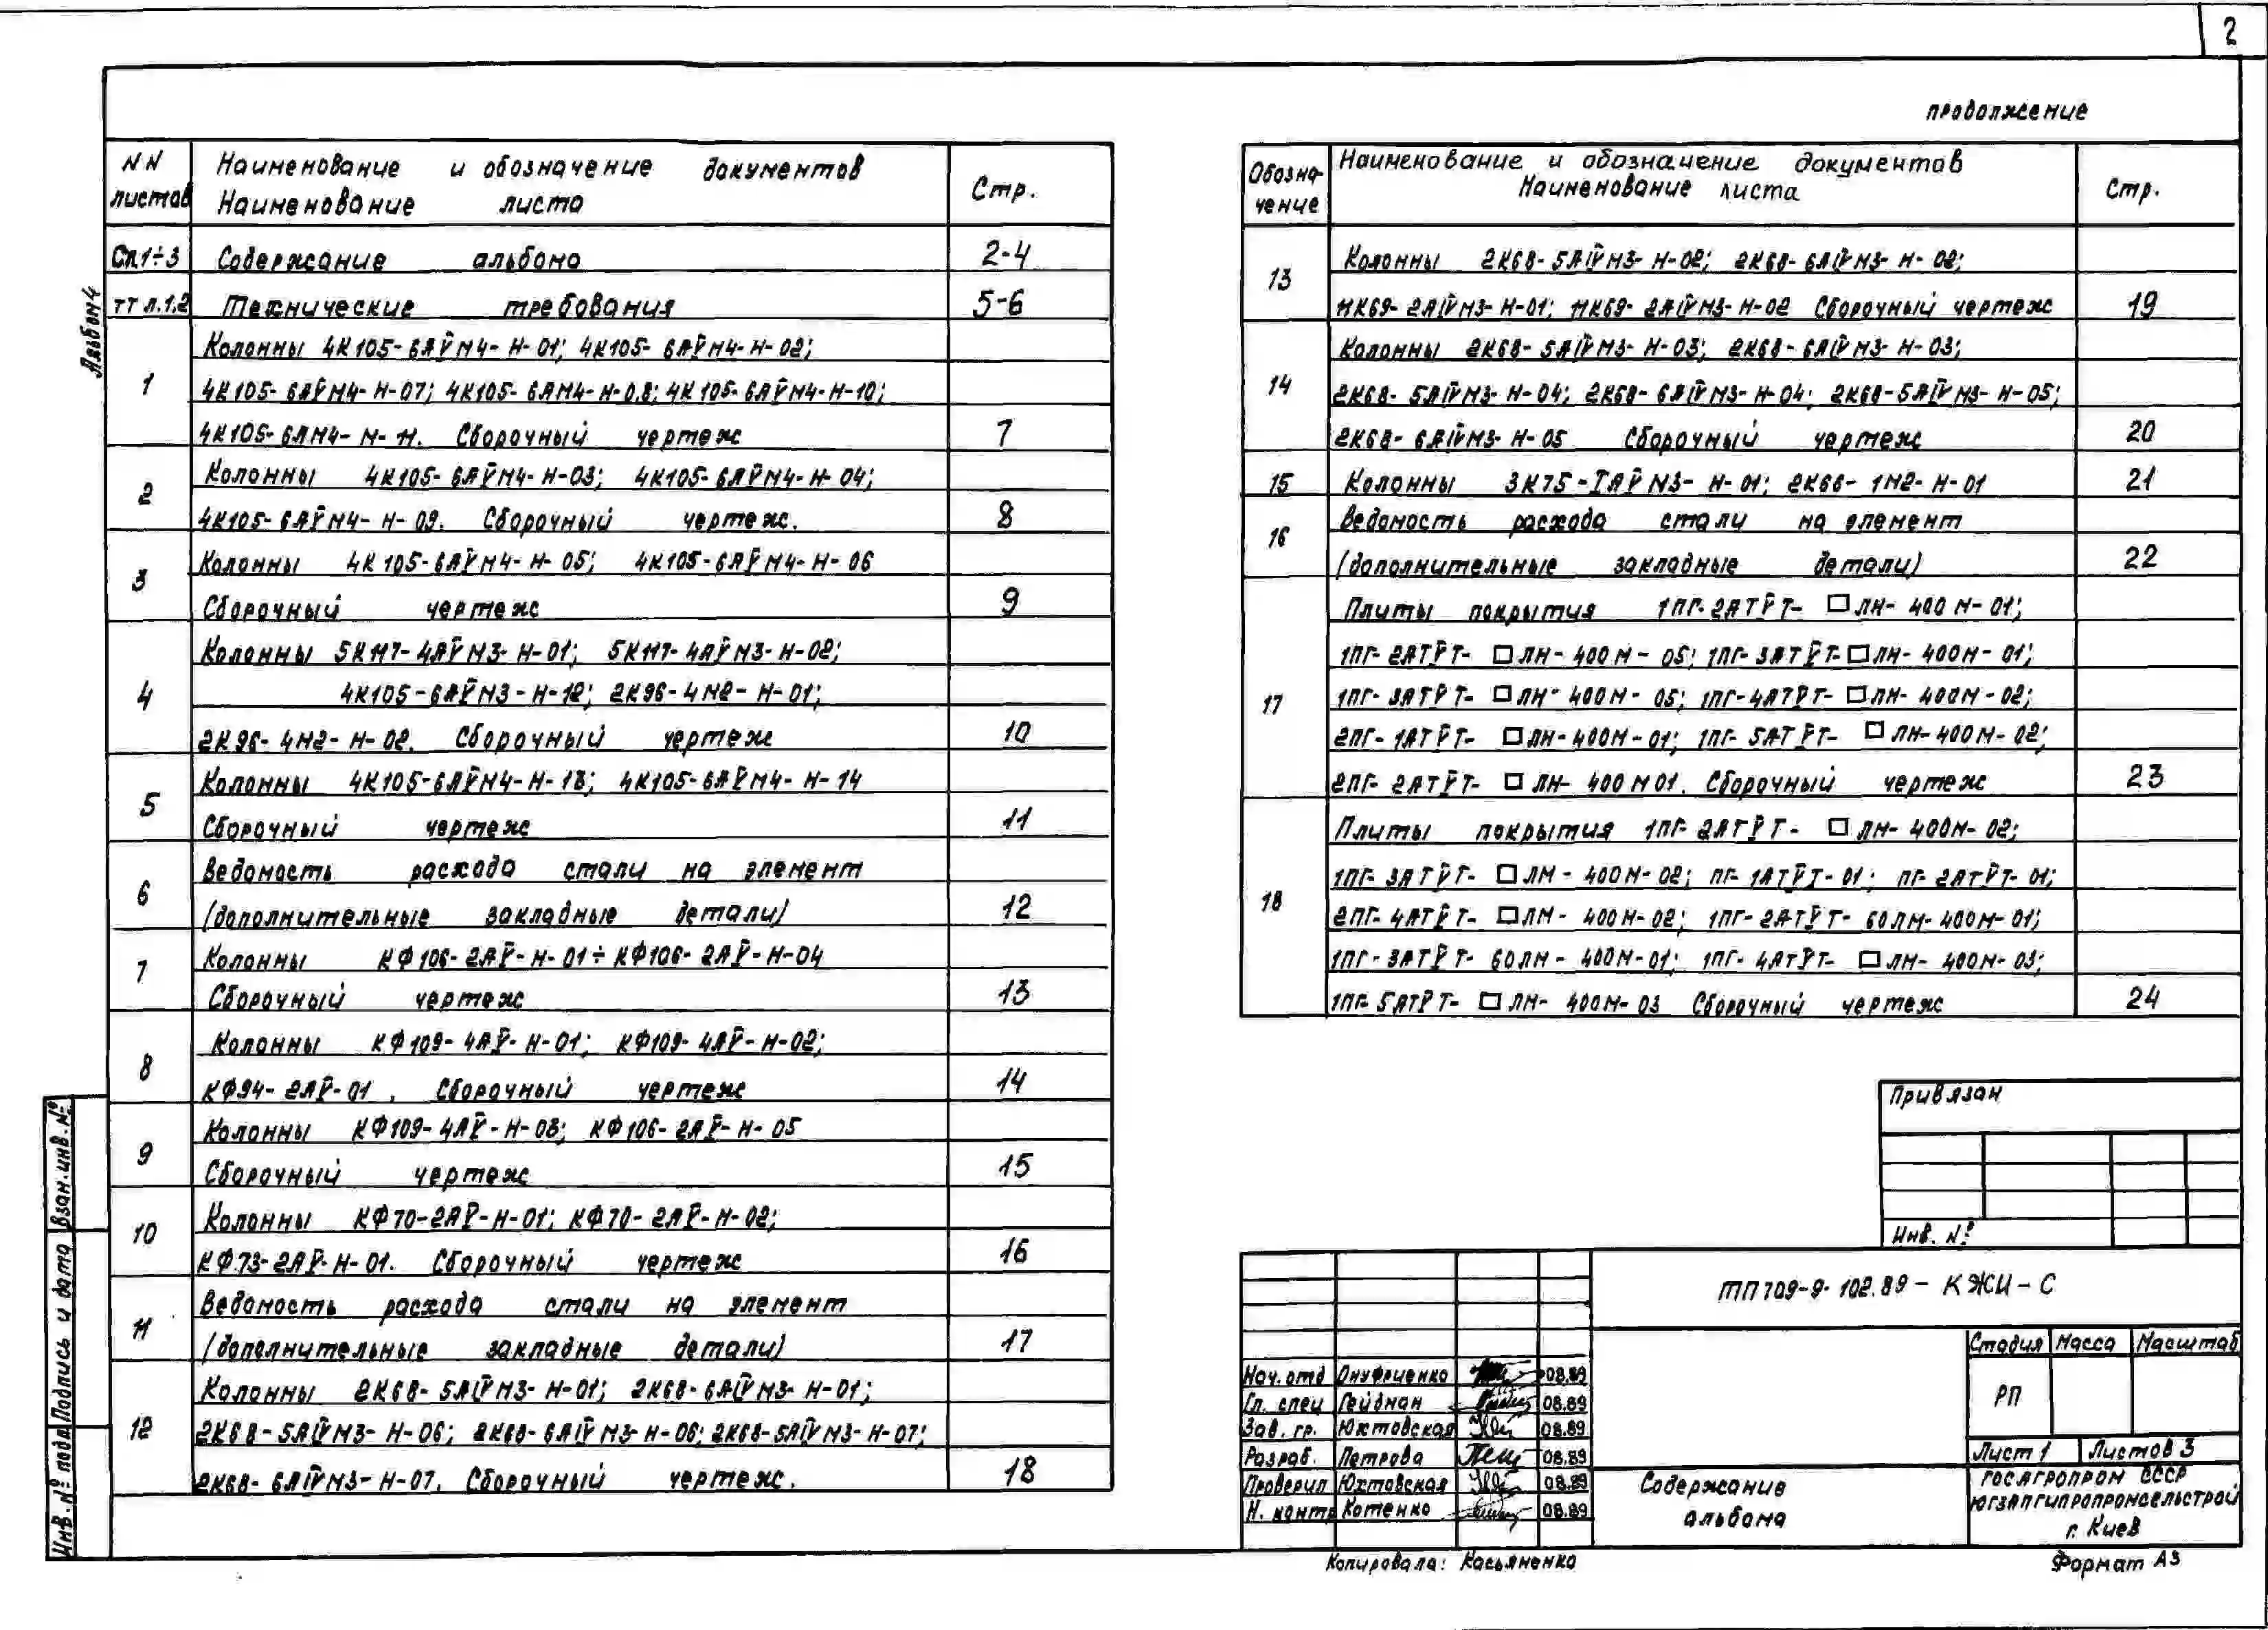 2
Альбом 4
NN листов
Наименование и обозначение документов
Наименование листа
Стр.
Сл.1÷3 Содержание альбома 2-4
ТТ л.1,2 Технические требования 5-6
1 Колонны 4К105-6АV̅М4-Н-01; 4К105-6АV̅М4-Н-02;
4К105-6АV̅М4-Н-07; 4К105-6АМ4-Н-08; 4К105-6АV̅М4-Н-10;
4К105-6АМ4-Н-11. Сборочный чертеж 7
2 Колонны 4К105-6АV̅М4-Н-03; 4К105-6АV̅М4-Н-04;
4К105-6АV̅М4-Н-09. Сборочный чертеж. 8
3 Колонны 4К105-6АV̅М4-Н-05; 4К105-6АV̅М4-Н-06
Сборочный чертеж 9
4 Колонны 5К117-4АV̅М3-Н-01; 5К117-4АV̅М3-Н-02;
4К105-6АV̅М3-Н-12; 2К96-4М2-Н-01;
2К96-4М2-Н-02. Сборочный чертеж 10
5 Колонны 4К105-6АV̅М4-Н-13; 4К105-6АV̅М4-Н-14
Сборочный чертеж 11
6 Ведомость расхода стали на элемент
(дополнительные закладные детали) 12
7 Колонны КФ106-2АV̅-Н-01÷КФ106-2АV̅-Н-04
Сборочный чертеж 13
8 Колонны КФ109-4АV̅-Н-01; КФ109-4АV̅-Н-02;
КФ94-2АV̅-01. Сборочный чертеж 14
9 Колонны КФ109-4АV̅-Н-03; КФ106-2АV̅-Н-05
Сборочный чертеж 15
10 Колонны КФ70-2АV̅-Н-01; КФ70-2АV̅-Н-02;
КФ73-2АV̅-Н-01. Сборочный чертеж 16
11 Ведомость расхода стали на элемент
(дополнительные закладные детали) 17
12 Колонны 2К68-5АIVМ3-Н-01; 2К68-6АIVМ3-Н-01;
2К68-5АIVМ3-Н-06; 2К68-6АIVМ3-Н-06; 2К68-5АIVМ3-Н-07;
2К68-6АIVМ3-Н-07. Сборочный чертеж. 18
продолжение
Обозначение
Наименование и обозначение документов
Наименование листа
Стр.
13 Колонны 2К68-5АIVМ3-Н-02; 2К68-6АIVМ3-Н-02;
11К69-2АIVМ3-Н-01; 11К69-2АIVМ3-Н-02 Сборочный чертеж 19
14 Колонны 2К68-5АIVМ3-Н-03; 2К68-6АIVМ3-Н-03;
2К68-5АIVМ3-Н-04; 2К68-6АIVМ3-Н-04; 2К68-5АIVМ3-Н-05;
2К68-6АIVМ3-Н-05 Сборочный чертеж 20
15 Колонны 3К75-1АV̅М3-Н-01; 2К66-1М2-Н-01 21
16 Ведомость расхода стали на элемент
(дополнительные закладные детали) 22
17 Плиты покрытия 1ПГ-2АТV̅Т-□ЛН-400Н-01;
1ПГ-2АТV̅Т-□ЛН-400Н-05; 1ПГ-3АТV̅Т-□ЛН-400Н-01;
1ПГ-3АТV̅Т-□ЛН-400Н-05; 1ПГ-4АТV̅Т-□ЛН-400Н-02;
2ПГ-1АТV̅Т-□ЛН-400Н-01; 1ПГ-5АТV̅Т-□ЛН-400Н-02;
2ПГ-2АТV̅Т-□ЛН-400Н 01. Сборочный чертеж 23
18 Плиты покрытия 1ПГ-2АТV̅Т-□ЛН-400Н-02;
1ПГ-3АТV̅Т-□ЛН-400Н-02; ПГ-1АТV̅Т-01; ПГ-2АТV̅Т-01;
2ПГ-4АТV̅Т-□ЛН-400Н-02; 1ПГ-2АТV̅Т-60ЛН-400Н-01;
1ПГ-3АТV̅Т-60ЛН-400Н-01; 1ПГ-4АТV̅Т-□ЛН-400Н-03;
1ПГ-5АТV̅Т-□ЛН-400Н-03 Сборочный чертеж 24
Привязан
Инв. №
ТП 709-9-102.89-КЖИ-С
Нач. отд Онуфриенко 08.89
Гл. спец Гейдман 08.89
Зав. гр. Юхтовская 08.89
Разраб. Петрова 08.89
Проверил Юхтовская 08.89
Н. контр Котенко 08.89
Стадия Масса Масштаб
РП
Лист 1 Листов 3
Содержание
альбома
ГОСАГРОПРОМ СССР
ЮГЗАПГИПРОПРОМСЕЛЬСТРОЙ
г. Киев
Копировала: Касьяненко
Формат А3
Инв. № подл Подпись и дата Взам. инв. №